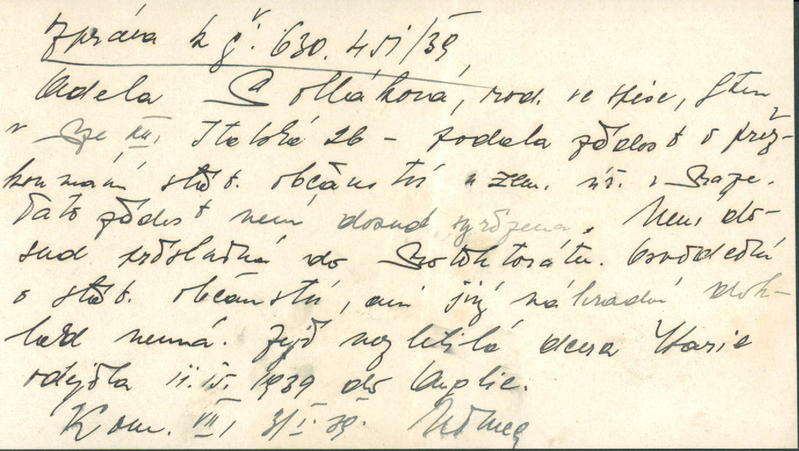 Zpráva k č. 630.451/39.
Adela Polláková, rod. ve spise, bytem
v Praze XII, Italská 26 – podala žádost o přez-
koumání stát. občanství u zem. úř. v Praze.
Tato žádost není dosud vyřízena. Není do-
sud příslušná do Protektorátu. Osvědčení
o stát. občanství, ani jiný náhradní dok-
lad nemá. Její nezletilá dcera Marie
odejela 11.IV. 1939 do Anglie.
Kom. VII, 3/I. 39.